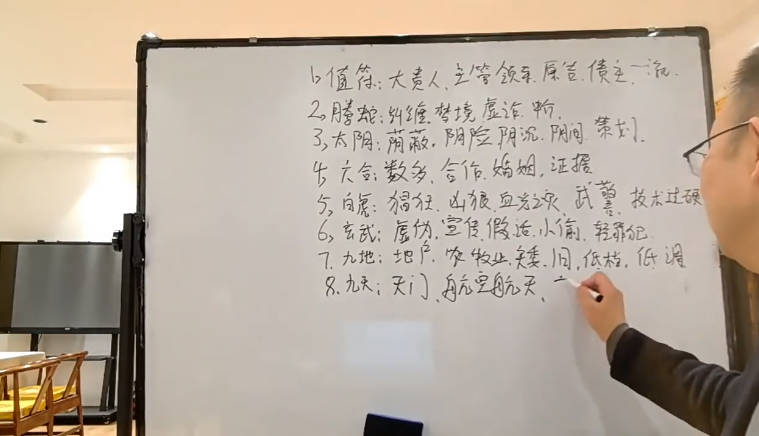 1、值符：大贵人、主管领导、原告、债主、一流.
2、腾蛇：纠缠、梦境、虚诈、
3、太阴：荫蔽、阴险、阴沉、阴间、策划.
4、六合：数多、合作、婚姻、证据
5、白虎：猖狂、凶狠、血光之灾、武警、技术过硬
6、玄武：虚伪、宣传、假话、小偷、轻罪犯.
7、九地：地户、农牧业、矮、旧、低档、低调
8、九天：天门、航空航天、